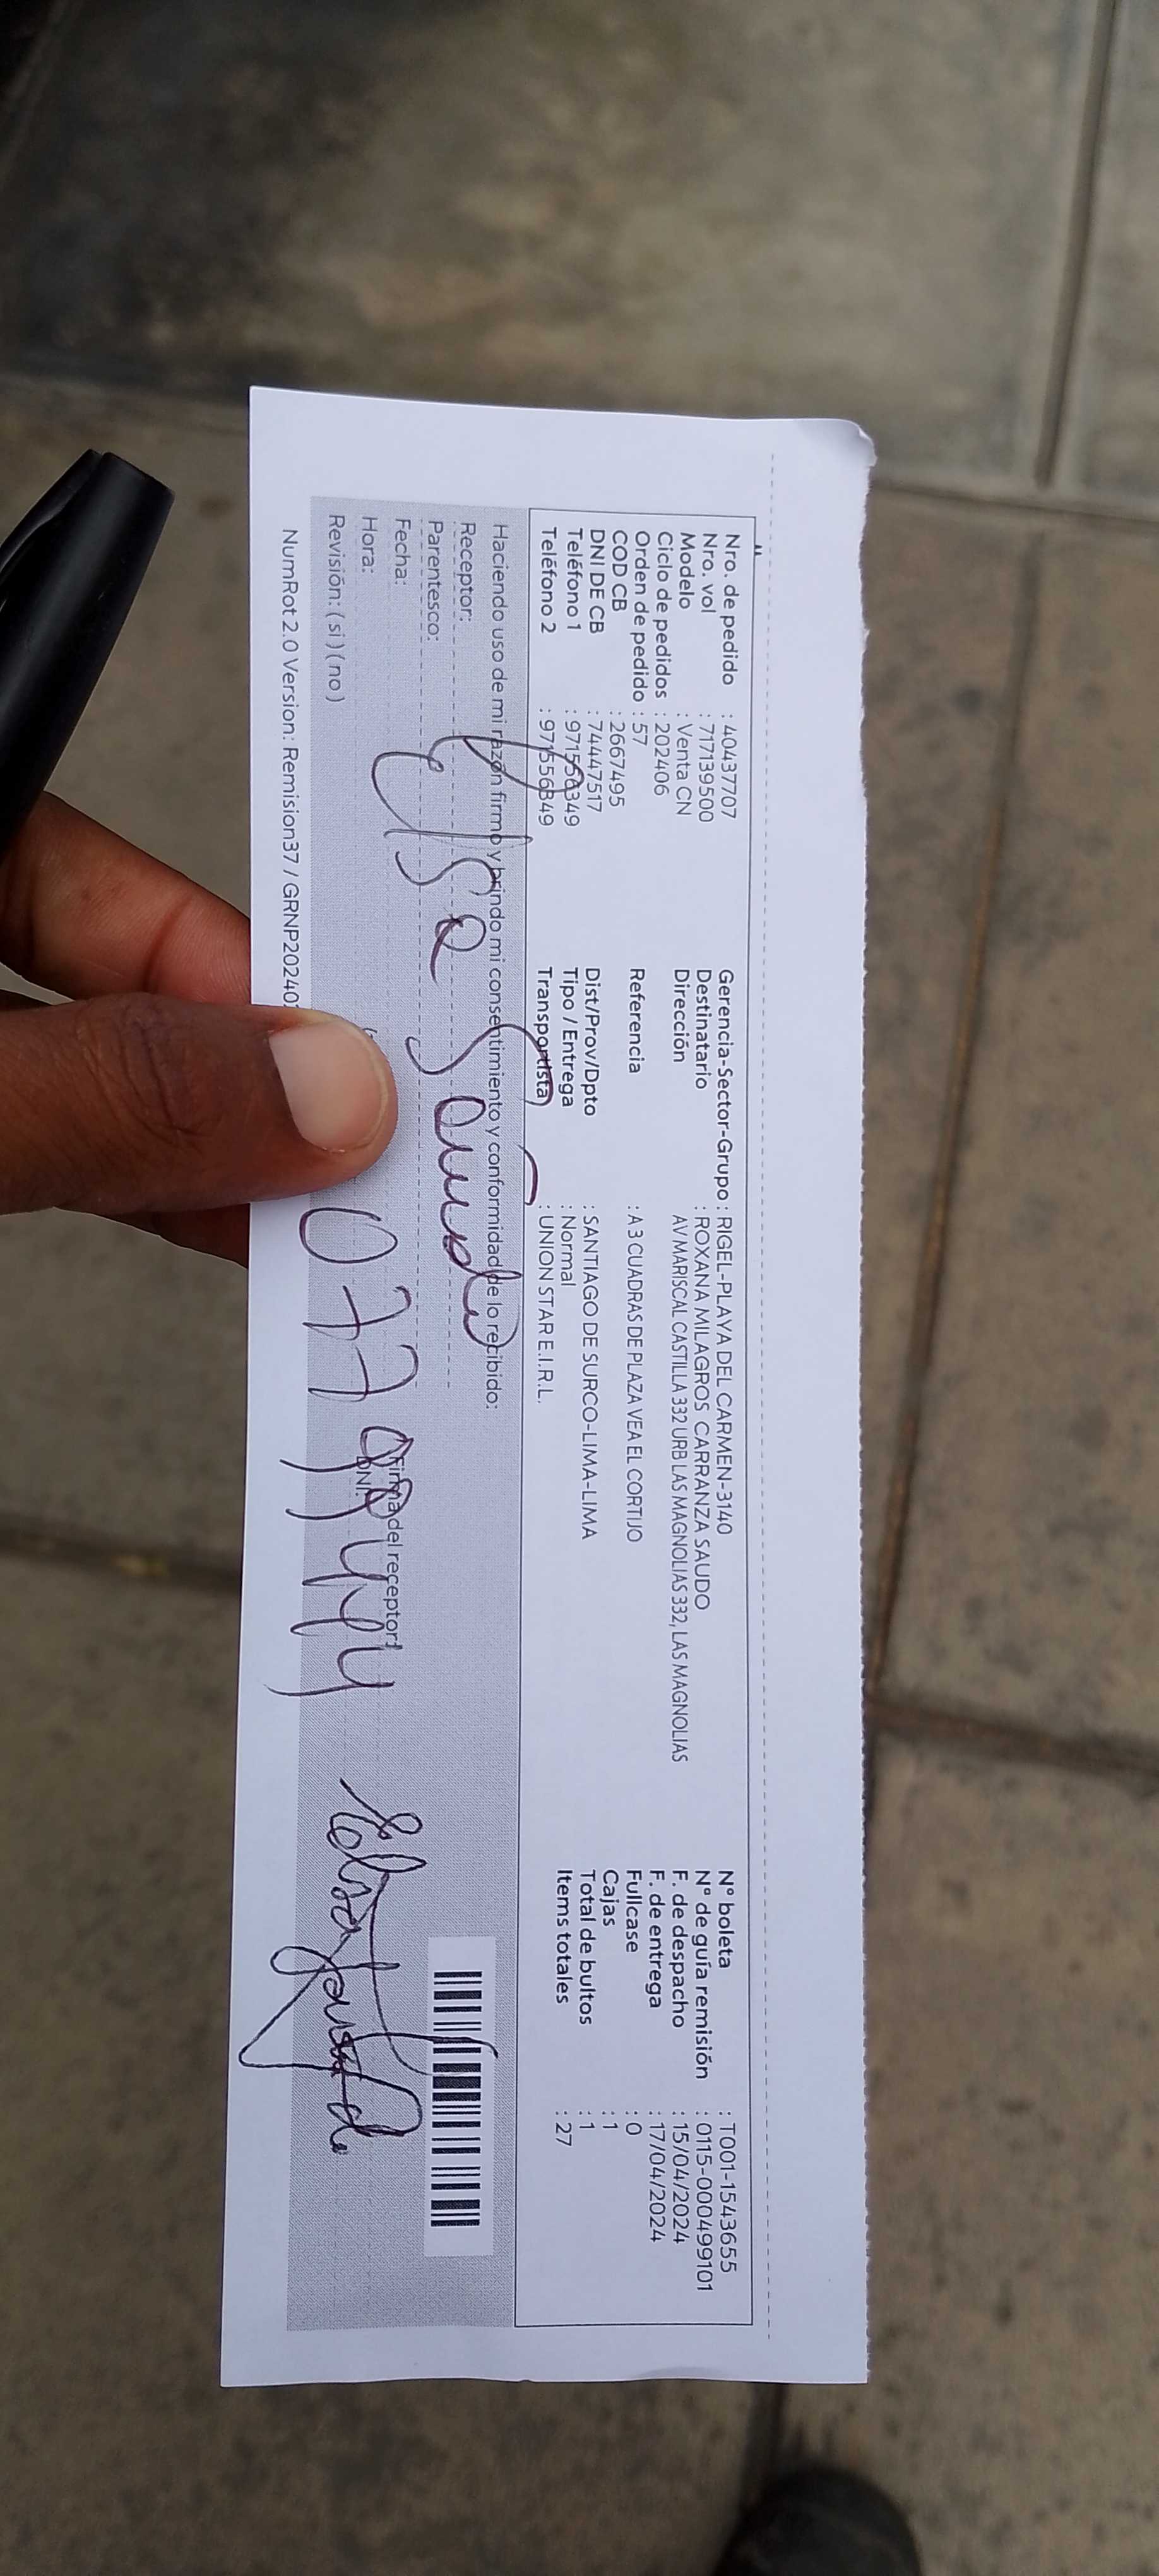 Nro. de pedido : 40437707
Nro. vol : 717139500
Modelo : Venta CN
Ciclo de pedidos : 202406
Orden de pedido : 57
COD CB : 2667495
DNI DE CB : 74447517
Teléfono 1 : 971556349
Teléfono 2 : 971556349
Gerencia-Sector-Grupo : RIGEL-PLAYA DEL CARMEN-3140
Destinatario : ROXANA MILAGROS CARRANZA SAUDO
Dirección AV MARISCAL CASTILLA 332 URB LAS MAGNOLIAS 332, LAS MAGNOLIAS
Referencia : A 3 CUADRAS DE PLAZA VEA EL CORTIJO
Dist/Prov/Dpto : SANTIAGO DE SURCO-LIMA-LIMA
Tipo / Entrega : Normal
Transportista : UNION STAR E.I.R.L.
N° boleta : T001-1543655
N° de guía remisión : 0115-000499101
F. de despacho : 15/04/2024
F. de entrega : 17/04/2024
Fullcase : 0
Cajas : 1
Total de bultos : 1
Items totales : 27
Haciendo uso de mi razón firmo y brindo mi consentimiento y conformidad de lo recibido:
Receptor:
Parentesco:
Fecha:
Hora:
Revisión: ( si ) ( no )
Elsa Saudo
Firma del receptor
DNI:
NumRot 2.0 Version: Remision37 / GRNP20240